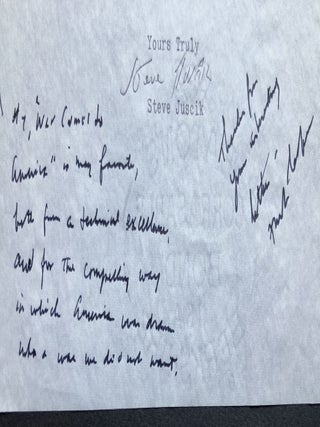 Yours Truly
Steve Juscik
Steve Juscik
My, "War Comes to
America" is my favorite,
both from a technical excellence,
and for the compelling way
in which America was drawn
into a war we did not want.
Thanks for
your
letter -